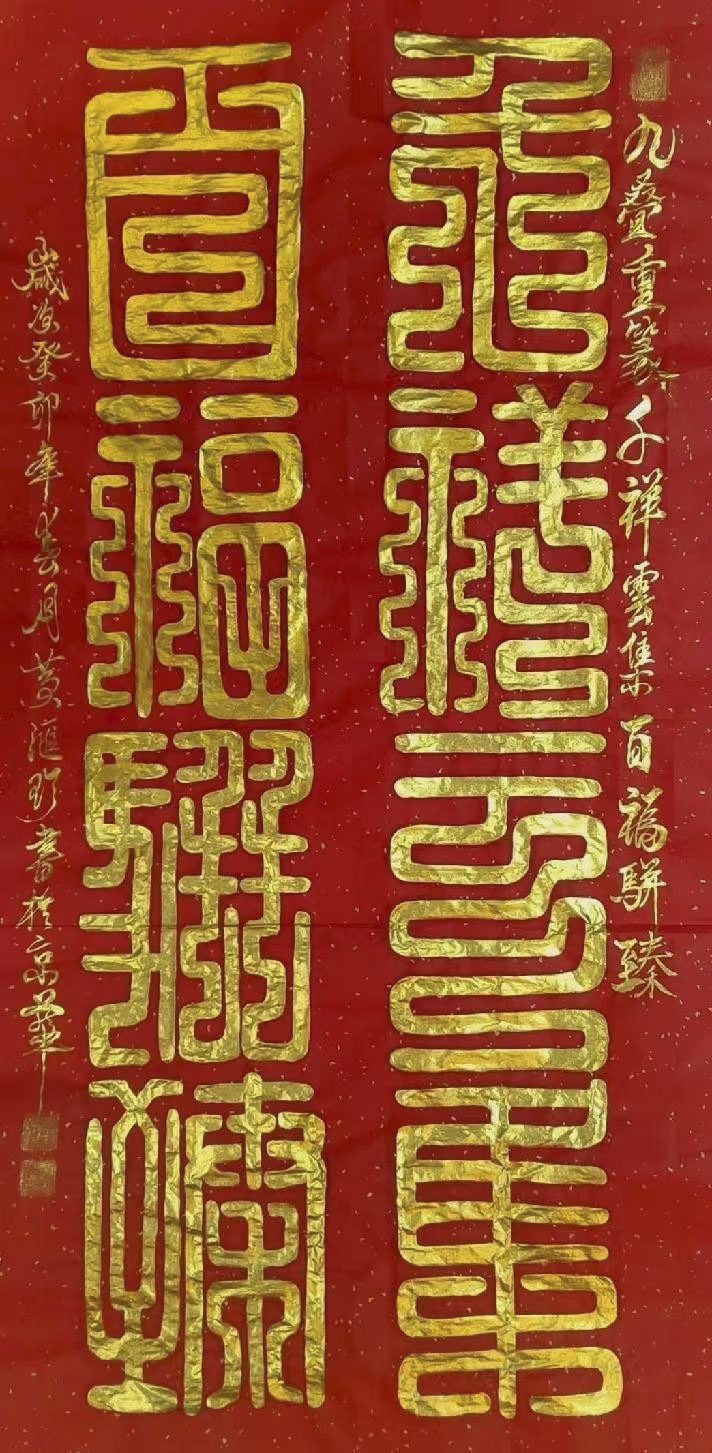 九疊重篆千祥雲集百福駢臻
千祥雲集
百福駢臻
歲次癸卯年春月黄滙書於京華